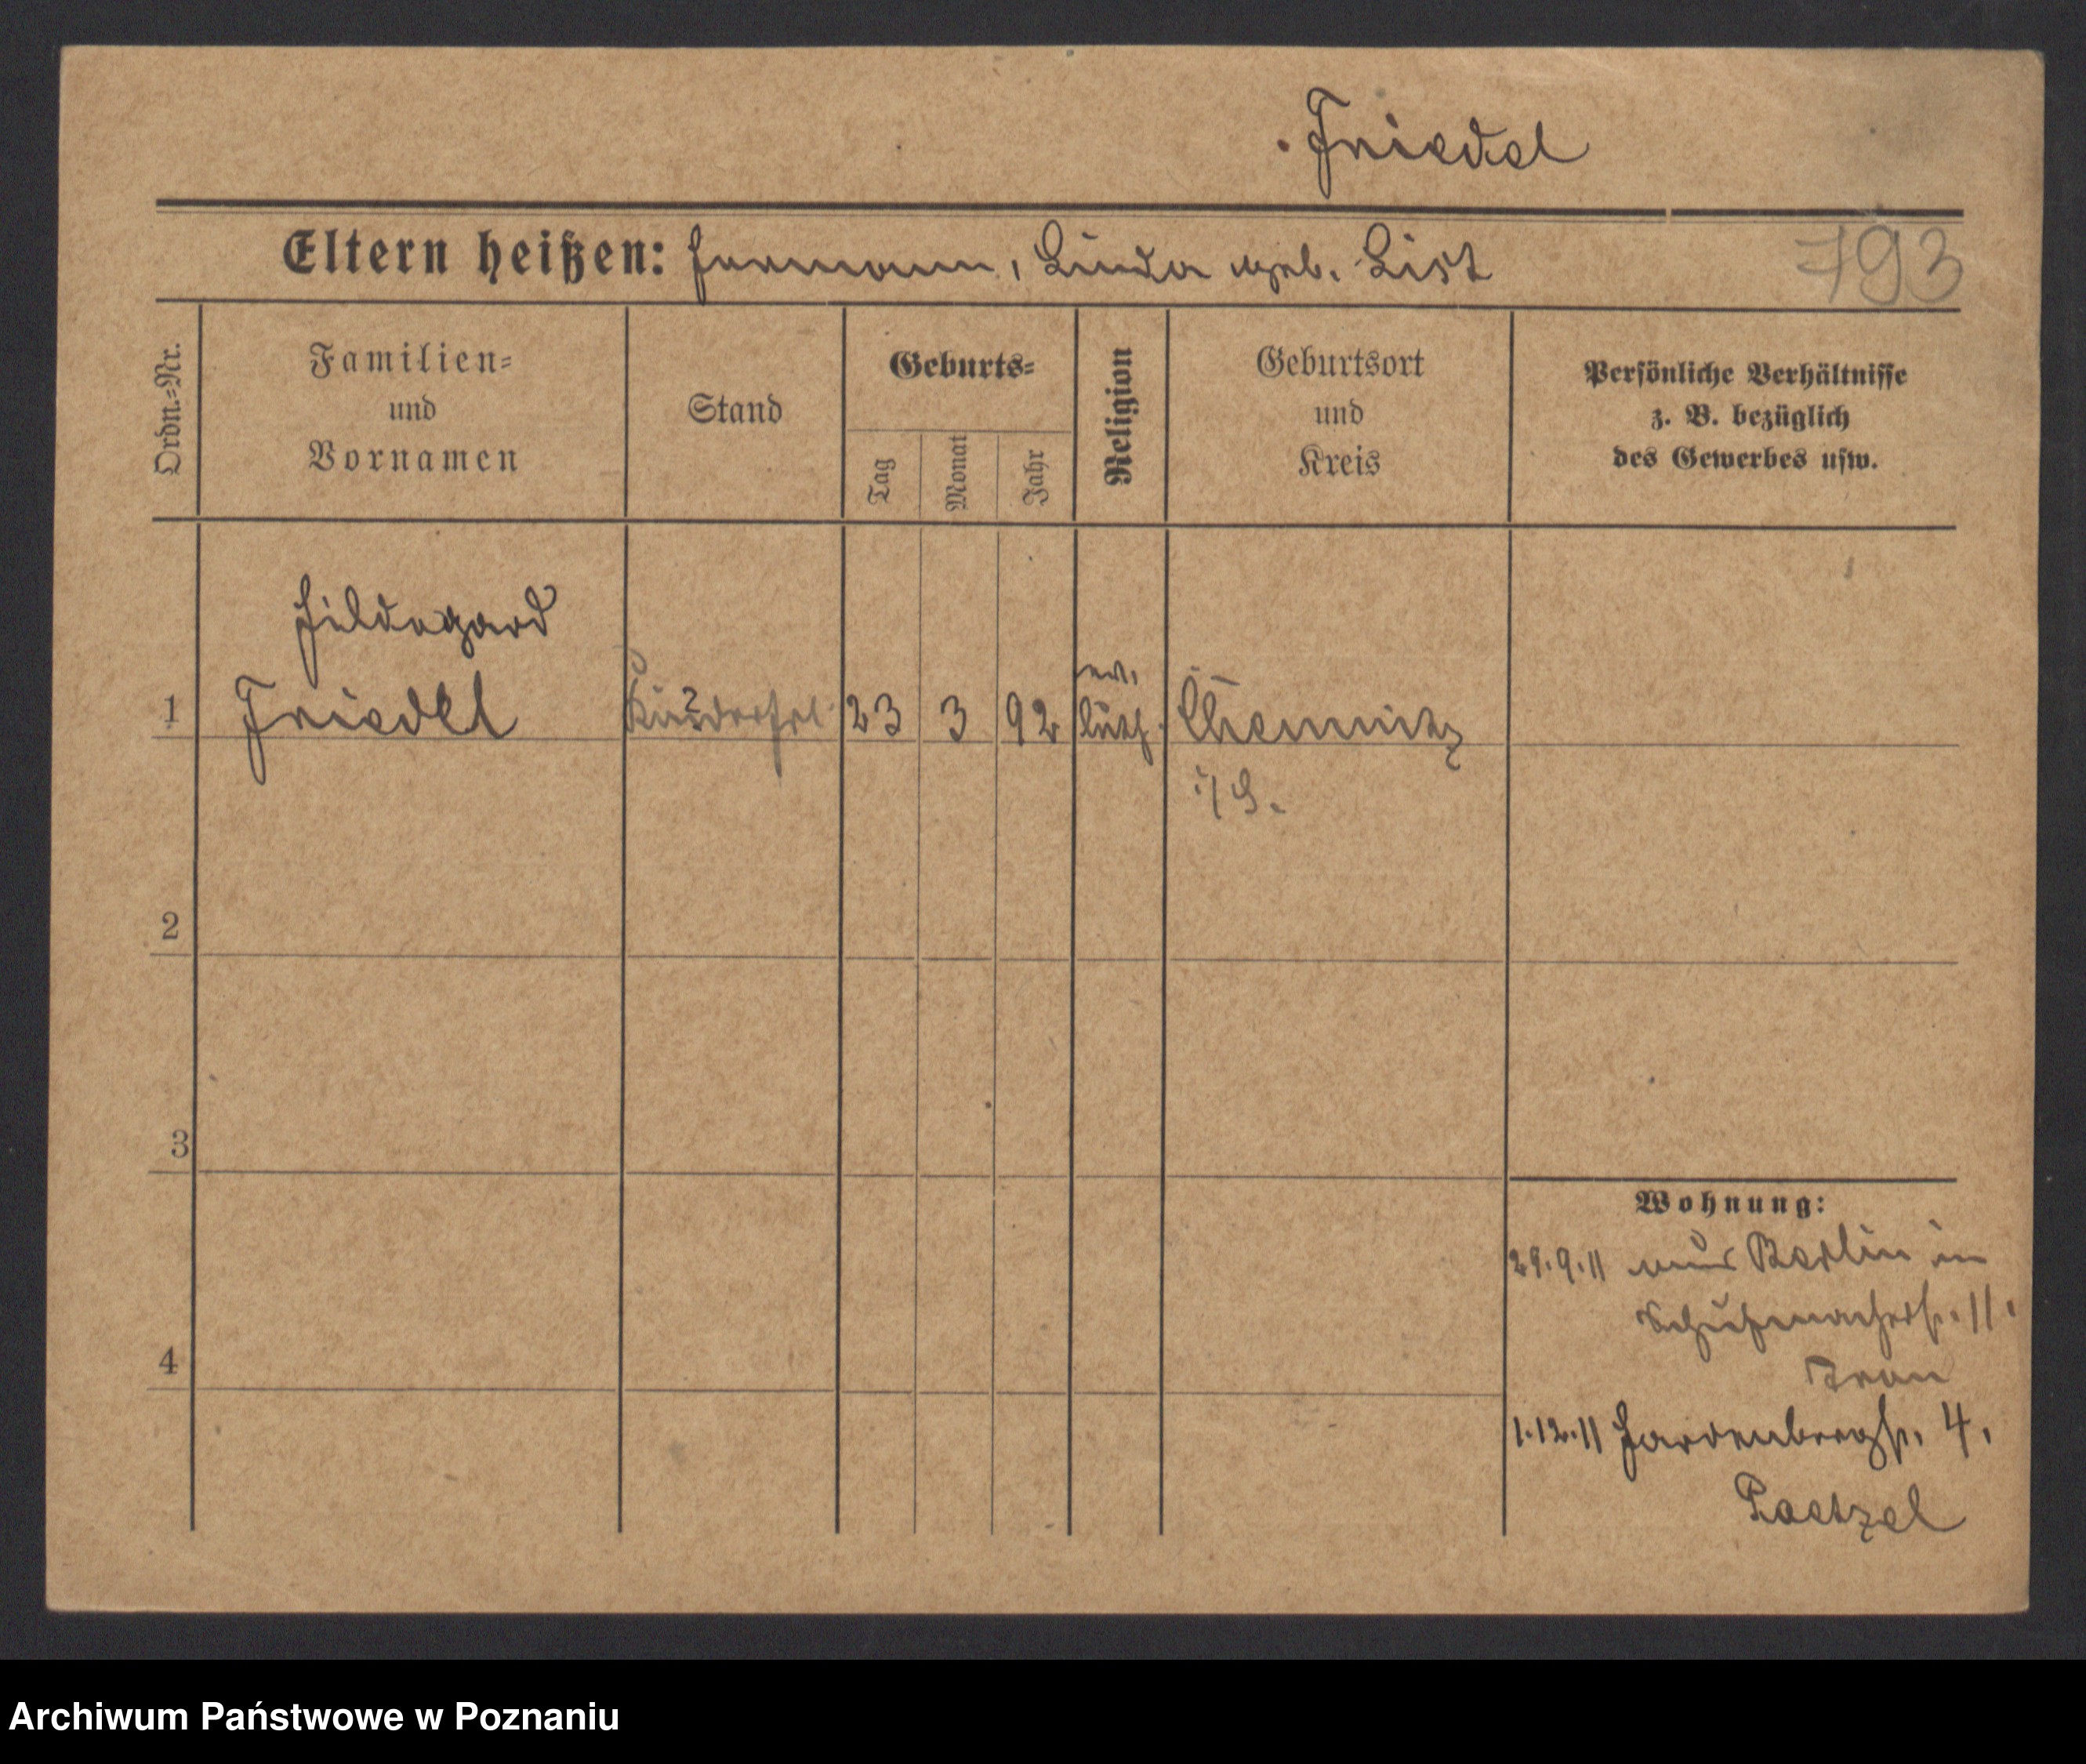 Friedel
Eltern heißen: Hermann, Linda geb. List
793
Ordn.=Nr.
Familien=
und
Vornamen
Stand
Geburts=
Tag
Monat
Jahr
Religion
Geburtsort
und
Kreis
Persönliche Verhältnisse
z. B. bezüglich
des Gewerbes usw.
Hildegard
ev.
1 Friedel Kinderfrl. 23 3 92 luth. Chemnitz
i/S.
2
3
Wohnung:
29.9.11 aus Berlin in
Schuhmacherstr. 11.
4
1.12.11 Hardenbergstr. 4.
Paetzel
Archiwum Państwowe w Poznaniu